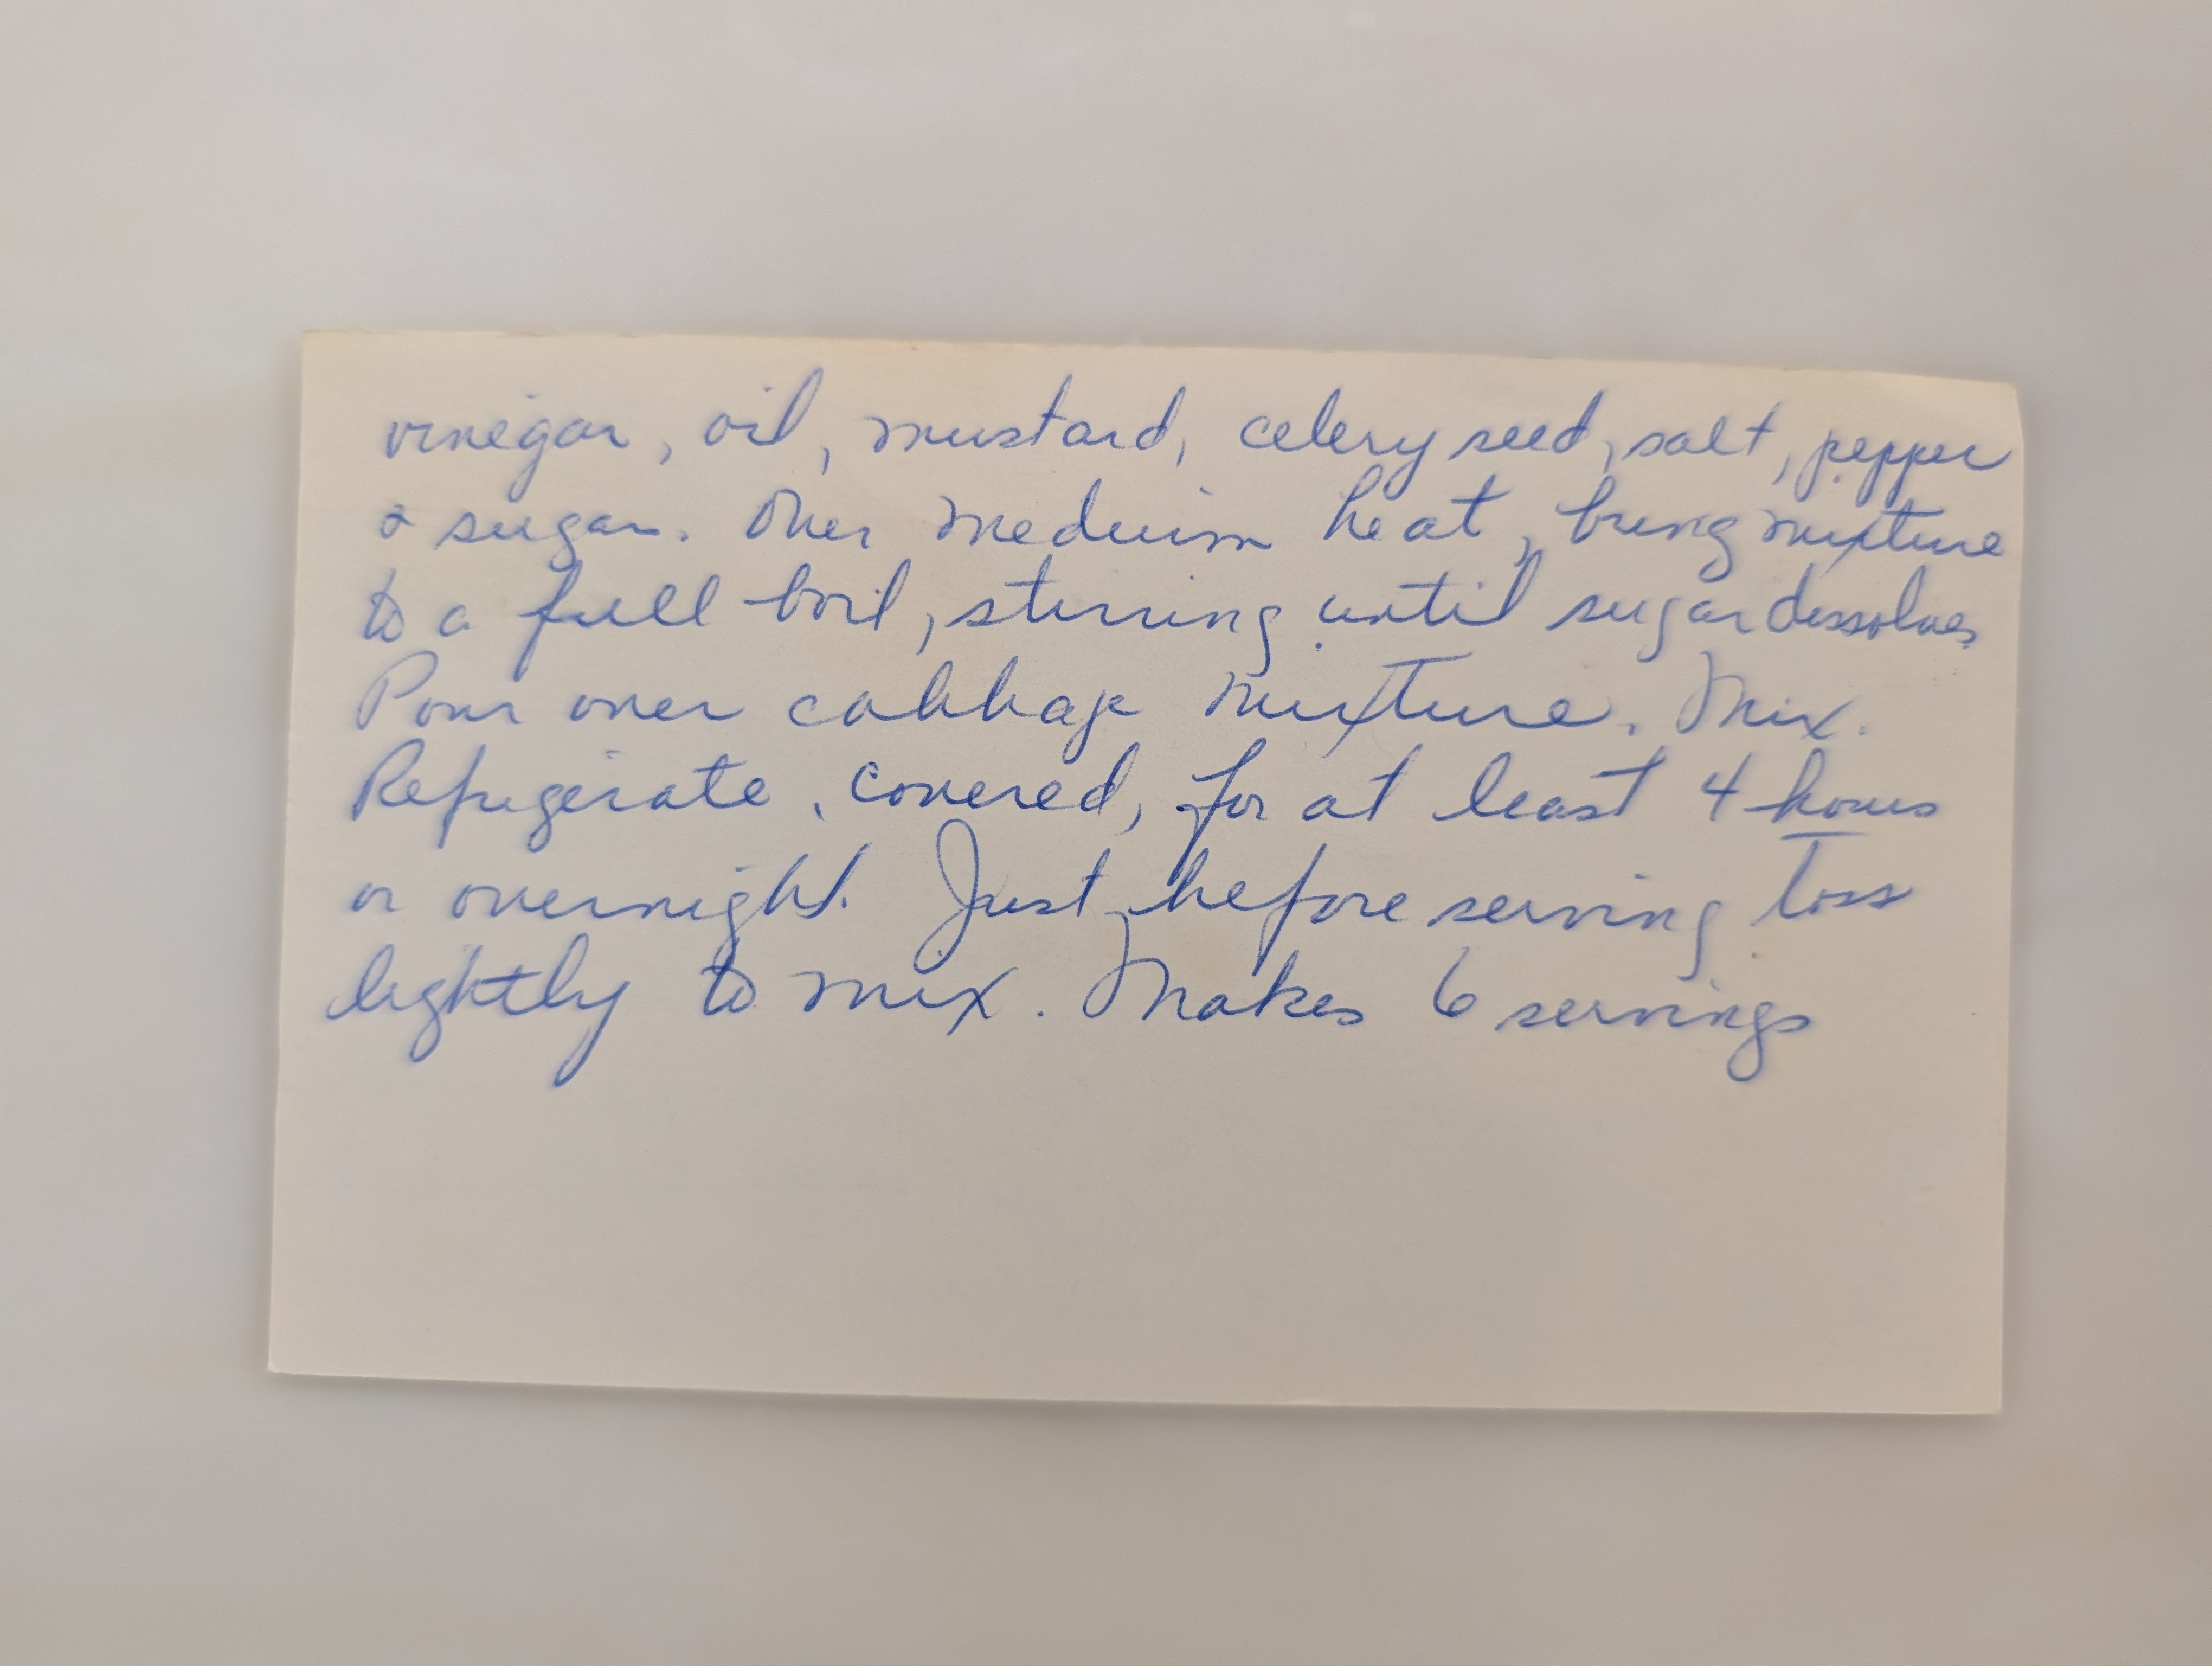 vinegar, oil, mustard, celery seed, salt, pepper
& sugar. Over medium heat, bring mixture
to a full boil, stirring until sugar dissolves.
Pour over cabbage mixture. Mix.
Refrigerate, covered, for at least 4 hours
or overnight. Just before serving toss
lightly to mix. Makes 6 servings